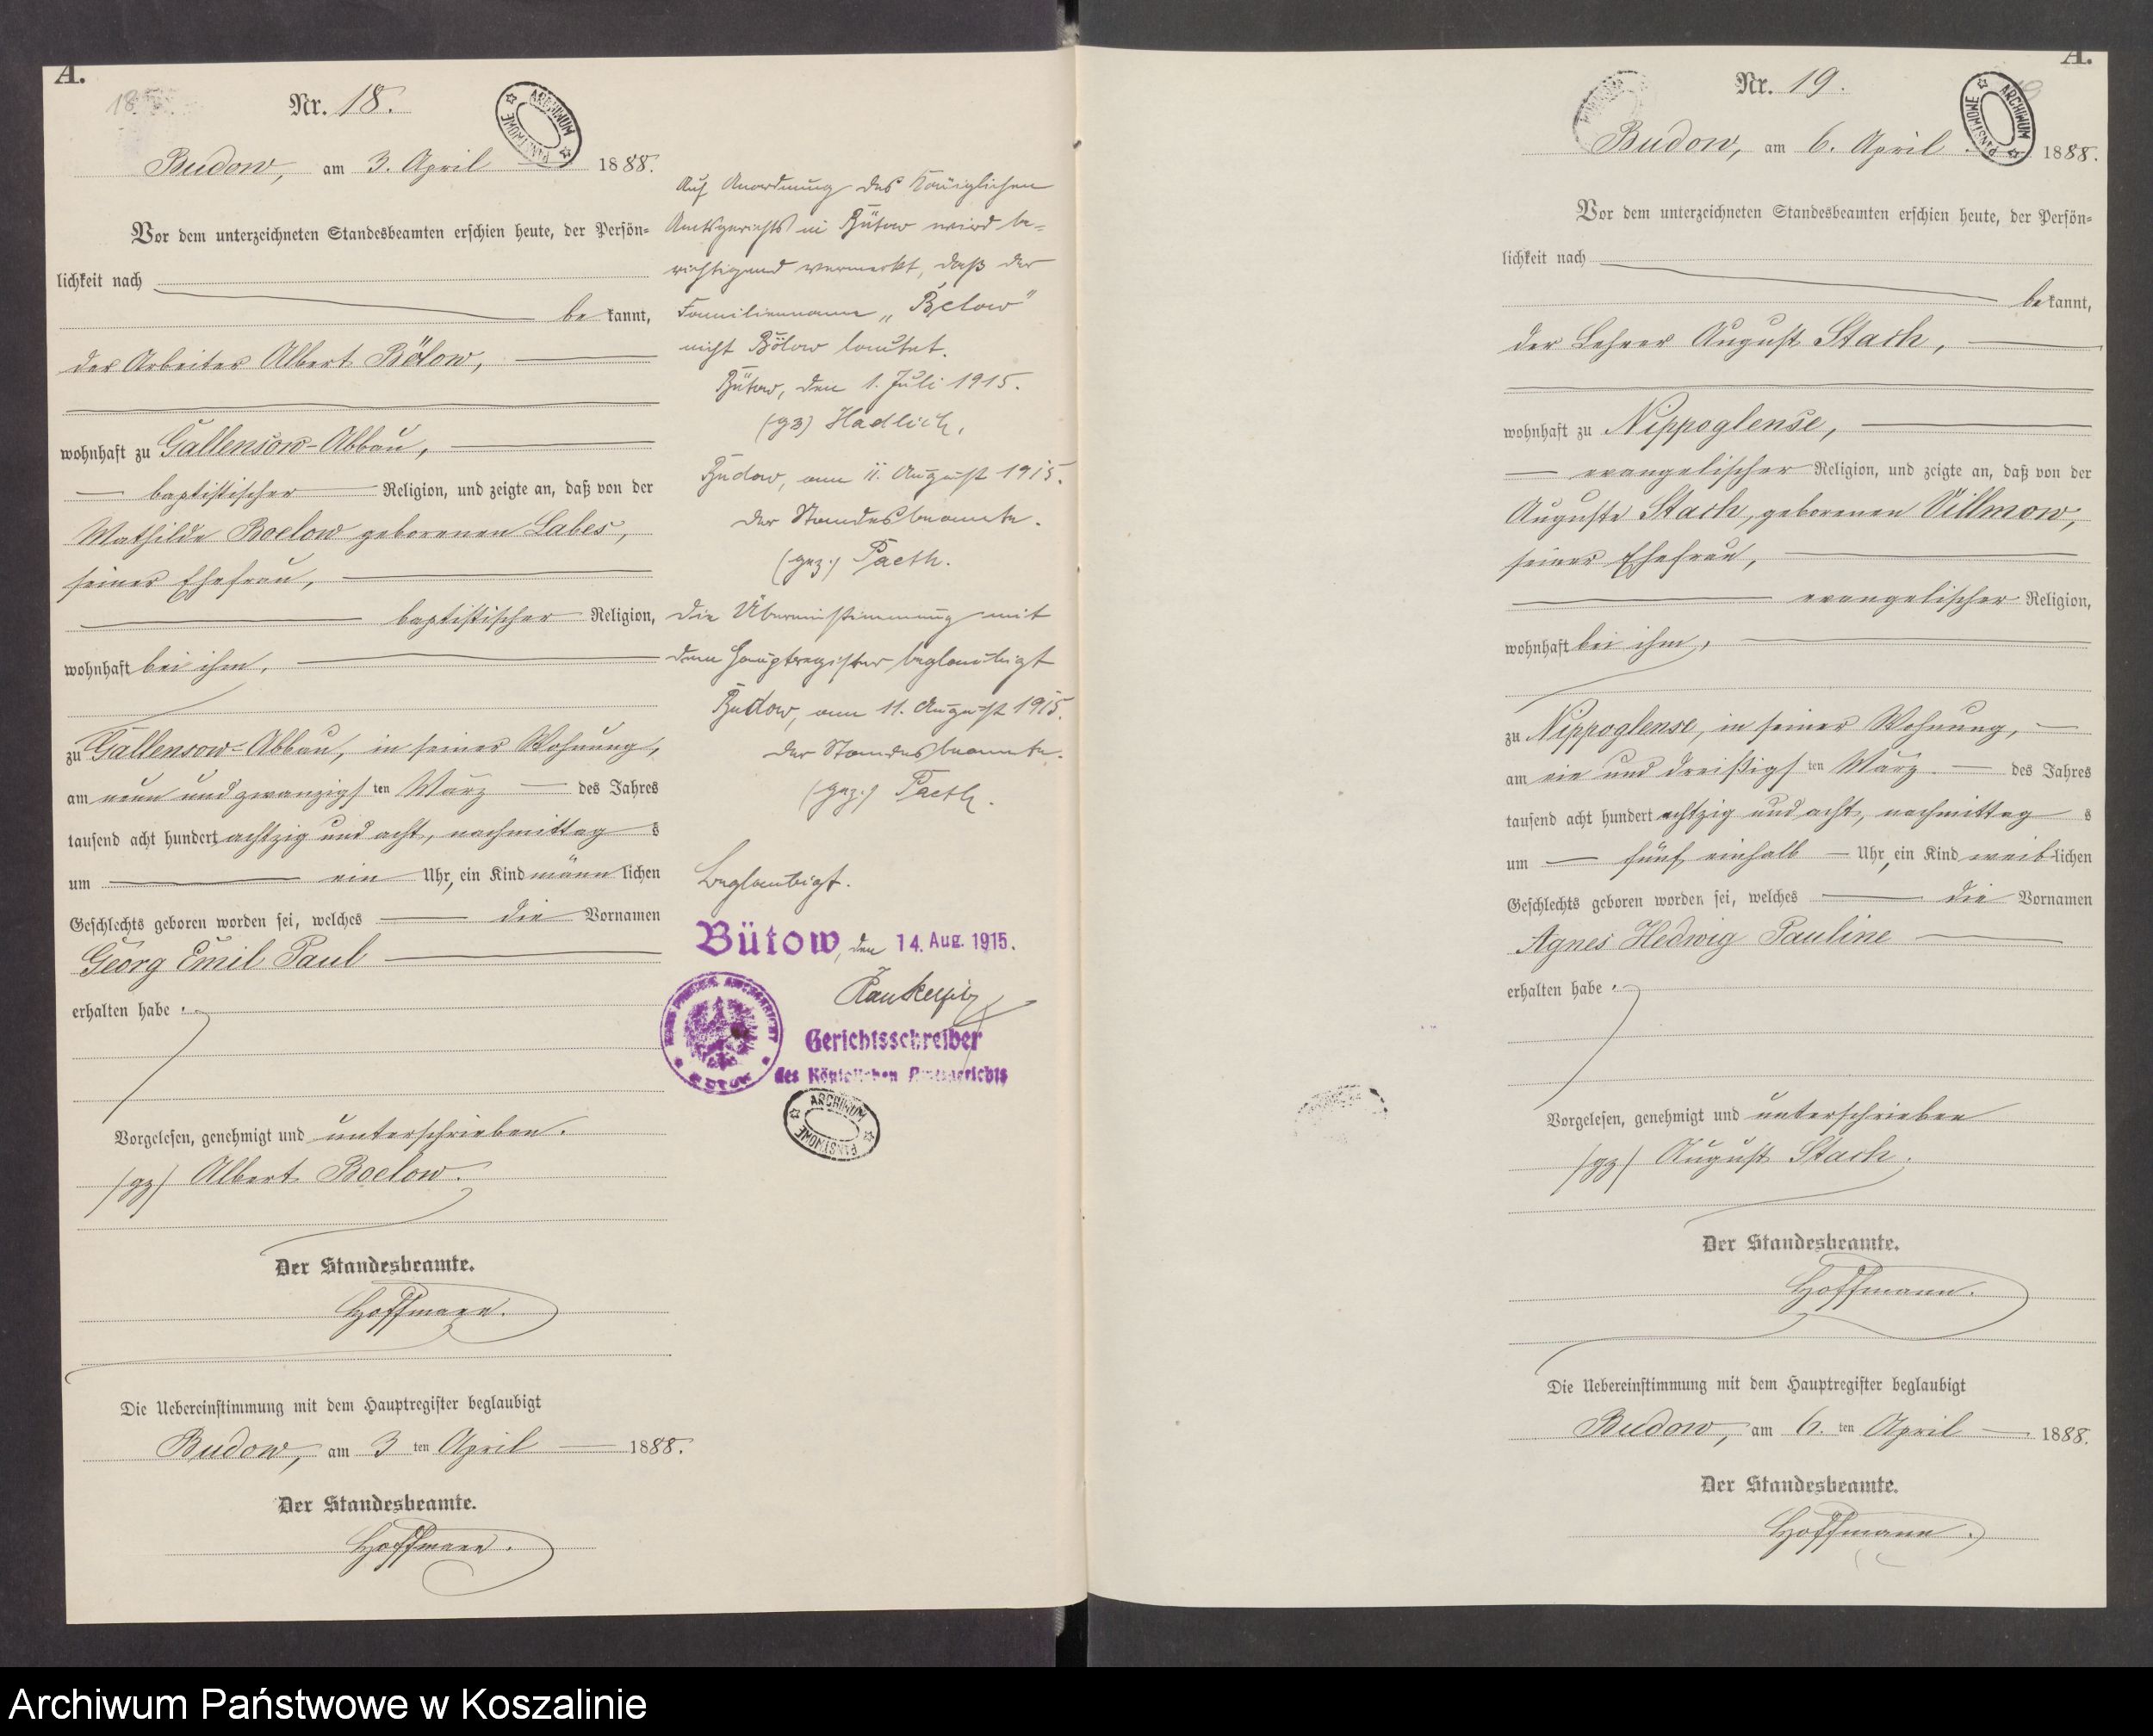 A.
18.
Nr. 18.
ARCHIWUM PAŃSTWOWE
Budow, am 3. April 1888.
Vor dem unterzeichneten Standesbeamten erschien heute, der Persön-
lichkeit nach
bekannt,
der Arbeiter Albert Bölow,
wohnhaft zu Gallensow-Abbau,
baptistischer Religion, und zeigte an, daß von der
Mathilde Boelow geborenen Labes,
seiner Ehefrau,
baptistischer Religion,
wohnhaft bei ihm,
zu Gallensow-Abbau, in seiner Wohnung,
am neun und zwanzigsten März des Jahres
tausend acht hundert achtzig und acht, nachmittags
um ein Uhr, ein Kind männlichen
Geschlechts geboren worden sei, welches die Vornamen
Georg Emil Paul
erhalten habe.
Vorgelesen, genehmigt und unterschrieben.
(gz) Albert Boelow.
Der Standesbeamte.
Hoffmann.
Die Uebereinstimmung mit dem Hauptregister beglaubigt
Budow, am 3ten April 1888.
Der Standesbeamte.
Hoffmann.
Auf Anordnung des Königlichen
Amtsgerichts in Bütow wird be-
richtigend vermerkt, daß der
Familienname „Below"
nicht Bölow lautet.
Bütow, den 1. Juli 1915.
(gz) Hadlich.
Budow, am 11. August 1915.
Der Standesbeamte.
(gez.) Paeth.
Die Übereinstimmung mit
dem Hauptregister beglaubigt
Budow, am 11. August 1915.
Der Standesbeamte.
(gez.) Paeth.
Beglaubigt.
Bütow, den 14. Aug. 1915.
Gerichtsschreiber
des Königlichen Amtsgerichts
ARCHIWUM PAŃSTWOWE
A.
Nr. 19.
ARCHIWUM PAŃSTWOWE
Budow, am 6. April 1888.
Vor dem unterzeichneten Standesbeamten erschien heute, der Persön-
lichkeit nach
bekannt,
der Lehrer August Stach,
wohnhaft zu Nippoglense,
evangelischer Religion, und zeigte an, daß von der
Auguste Stach, geborenen Villmow,
seiner Ehefrau,
evangelischer Religion,
wohnhaft bei ihm,
zu Nippoglense, in seiner Wohnung,
am ein und dreißigsten März des Jahres
tausend acht hundert achtzig und acht, nachmittags
um fünf einhalb Uhr, ein Kind weiblichen
Geschlechts geboren worden sei, welches die Vornamen
Agnes Hedwig Pauline
erhalten habe.
Vorgelesen, genehmigt und unterschrieben
(gz) August Stach.
Der Standesbeamte.
Hoffmann.
Die Uebereinstimmung mit dem Hauptregister beglaubigt
Budow, am 6.ten April 1888.
Der Standesbeamte.
Hoffmann.
Archiwum Państwowe w Koszalinie